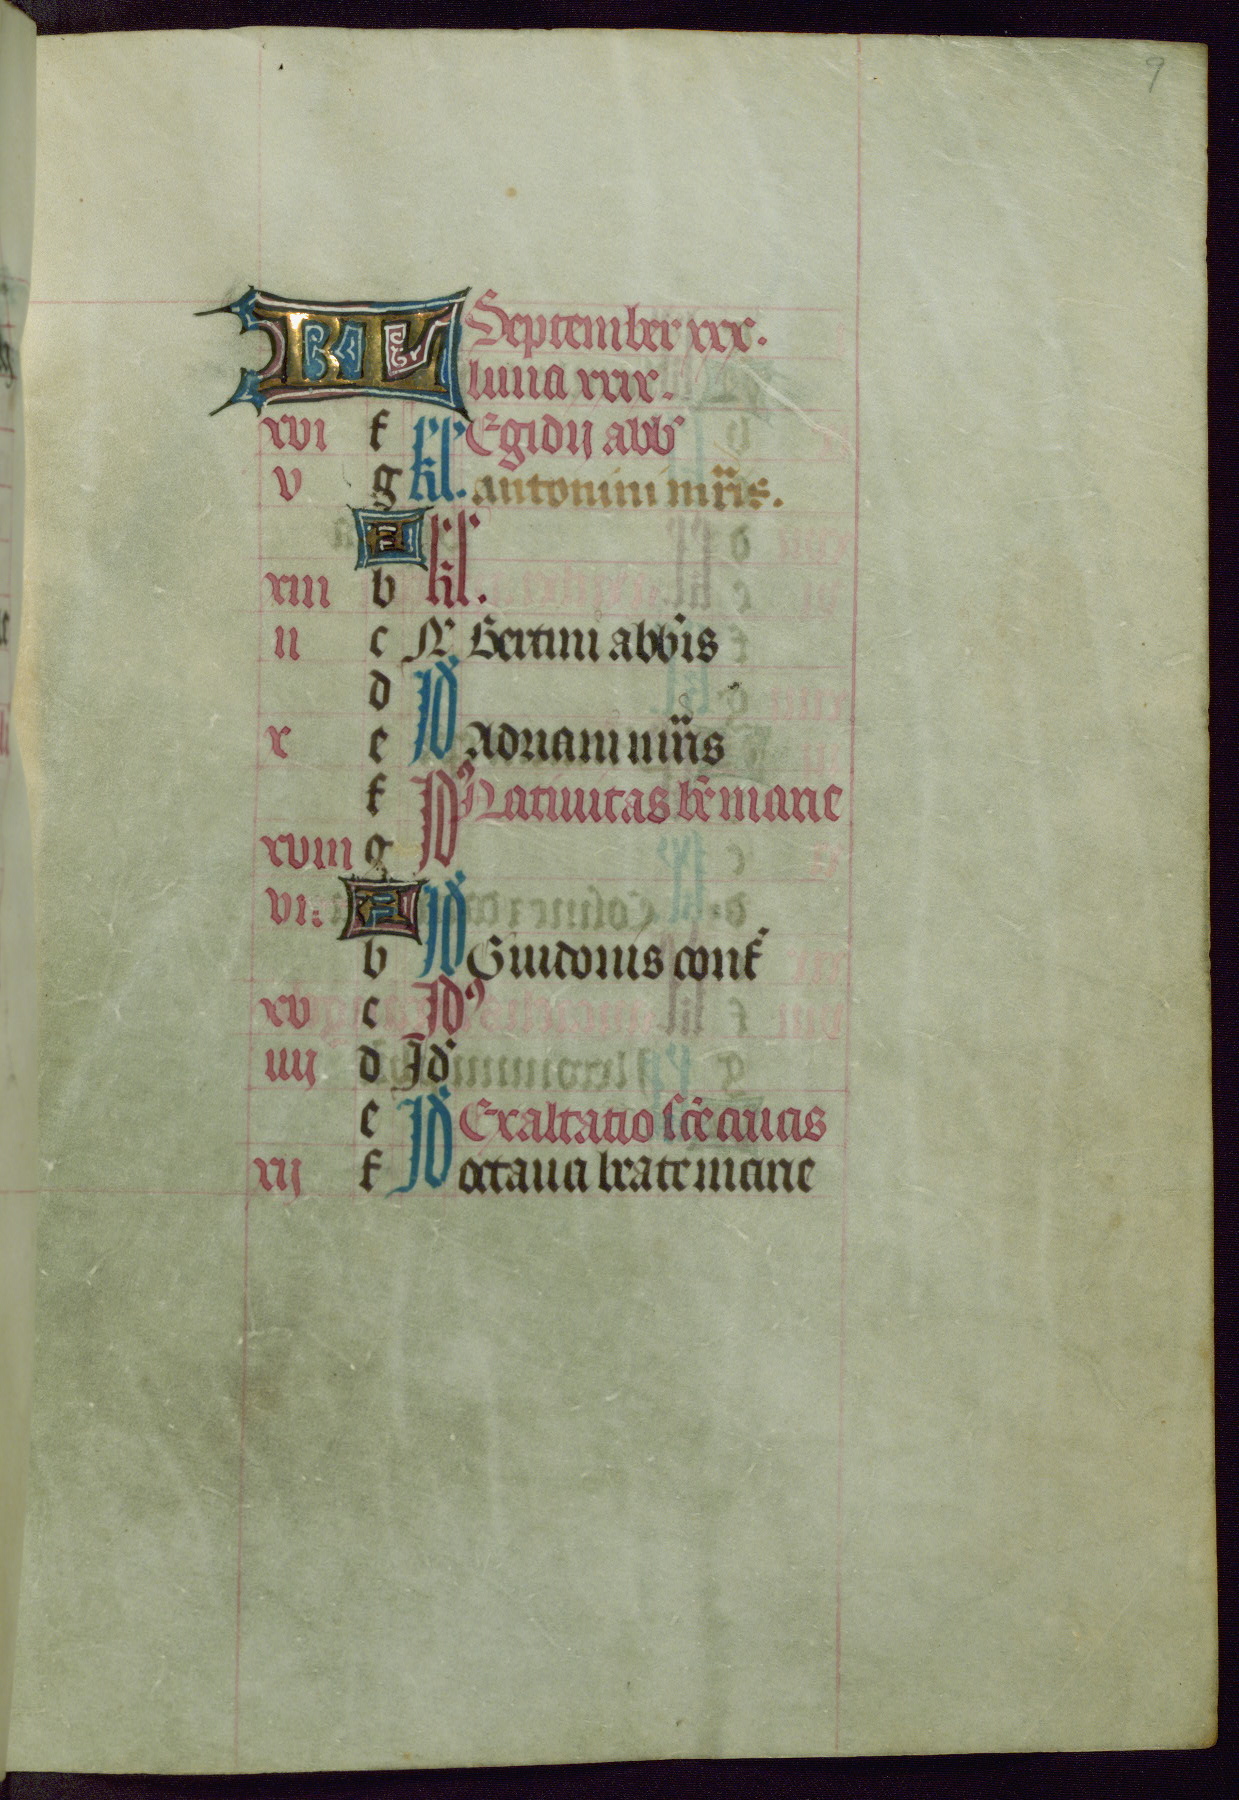 9
KL September xxx.
luna xxix.
xvi f kl Egidij abb
v g kl. antonini mris.
A
xiii b kl.
ii c N Bertini abbis
d Id
x e Adriani mris
f Id Natiuitas be marie
xviii g
vi: A Id
b Guidonis conf
xv c Id
iiij d Id
e Id Exaltatio sce crucis
xij f octaua beate marie